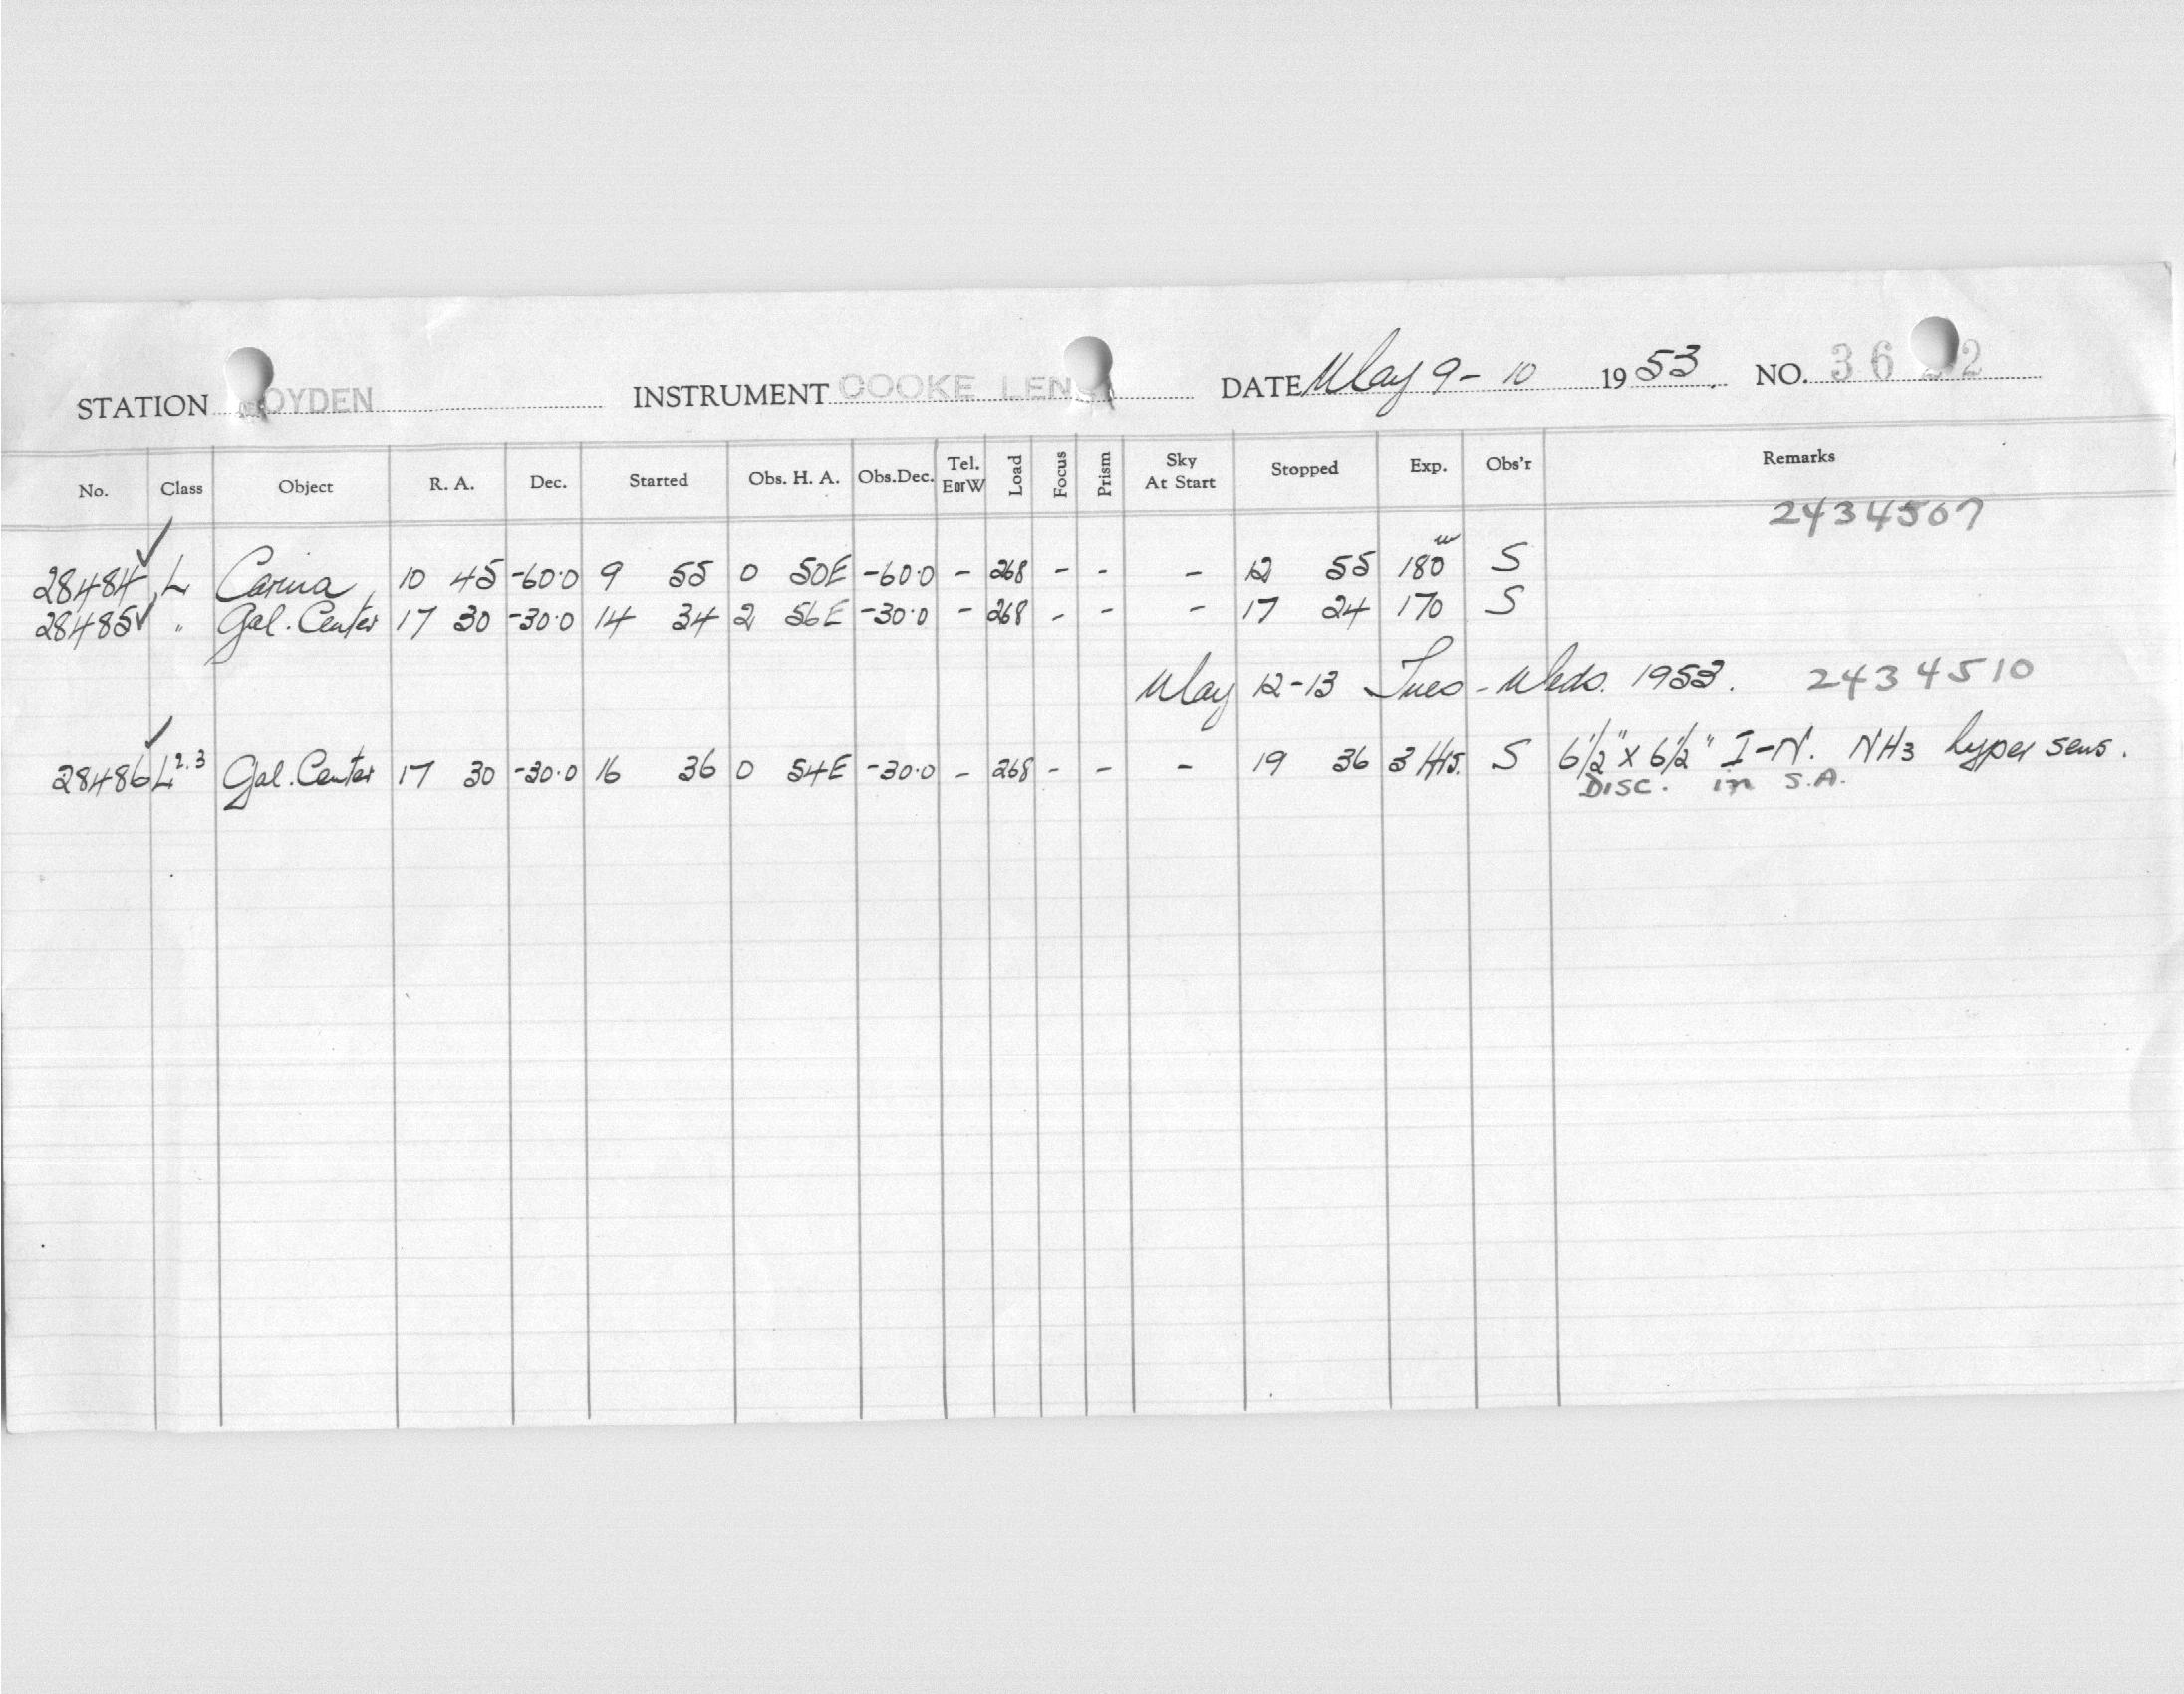 STATION OYDEN INSTRUMENT COOKE LEN DATE May 9-10 1953. NO. 36 2
No. Class Object R. A. Dec. Started Obs. H. A. Obs.Dec. Tel. E or W Load Focus Prism Sky At Start Stopped Exp. Obs'r Remarks
2434507
28484 L Carina 10 45 -60.0 9 55 0 50E -60.0 - 268 - - - 12 55 180m S
28485 " Gal. Center 17 30 -30.0 14 34 2 56E -30.0 - 268 - - - 17 24 170 S
May 12-13 Tues - Weds. 1953. 2434510
28486 L2.3 Gal. Center 17 30 -30.0 16 36 0 54E -30.0 - 268 - - - 19 36 3 Hrs. S 6 1/2" x 6 1/2" I-N. NH3 hyper sens.
DISC. in S.A.